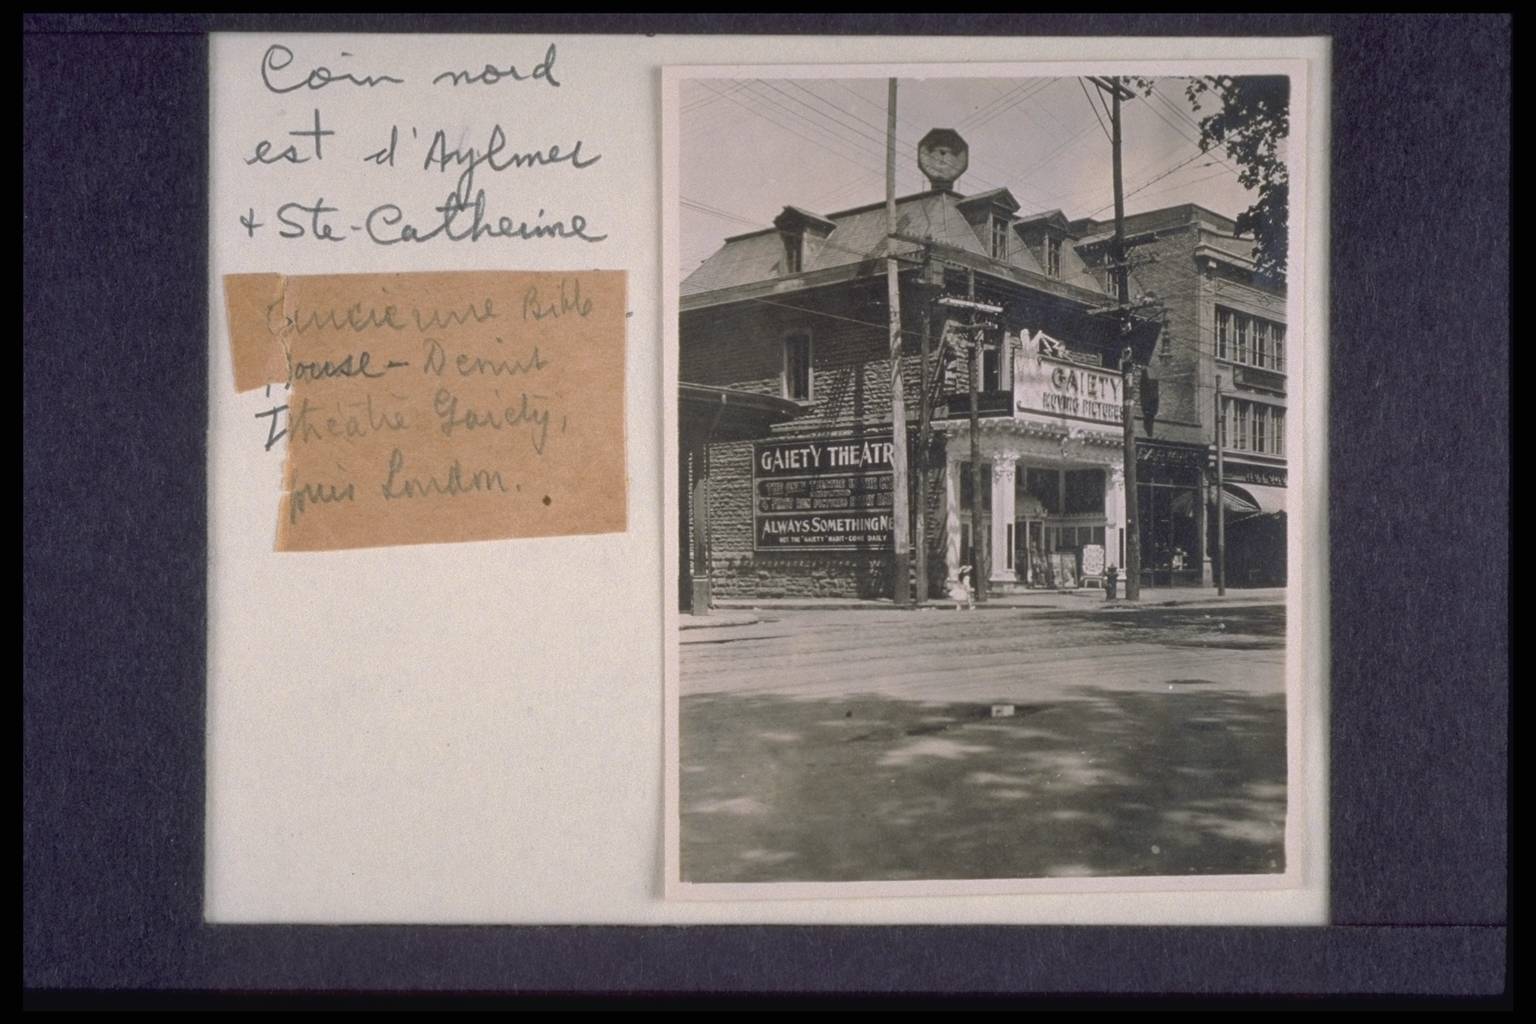 Coin nord
est d'Aylmer
+ Ste-Catherine
Ancienne Bible
House - Devint
Théâtre Gaiety,
puis London.
GAIETY
MOVING PICTURES
GAIETY THEATR
ALWAYS SOMETHING NE
GET THE "GAIETY" HABIT - COME DAILY